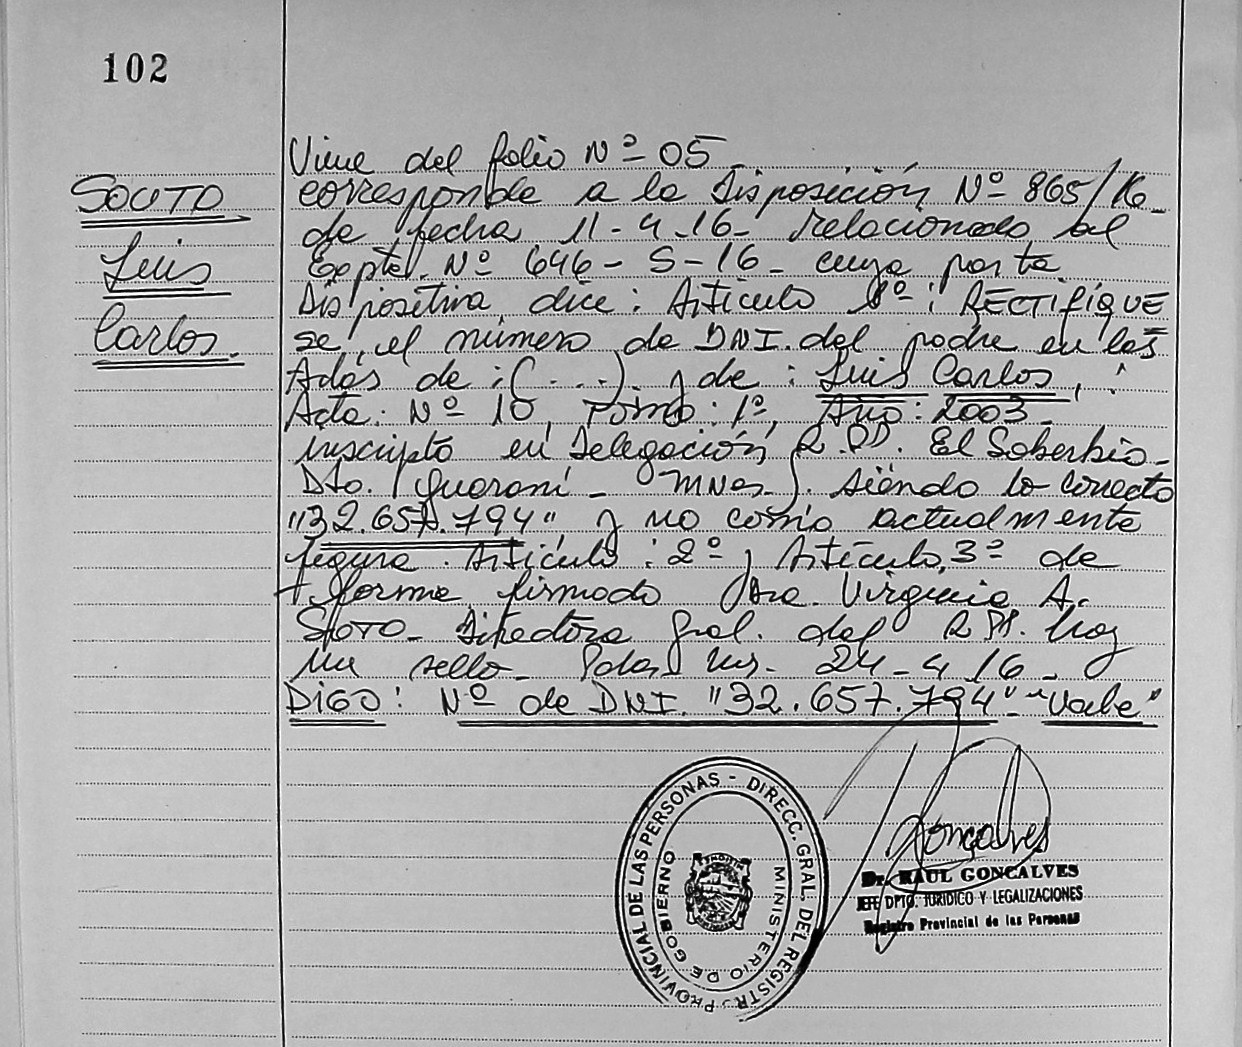 102
Viene del folio Nº 05
SOUTO
corresponde a la Disposición Nº 865/16
de fecha 11-4-16- relacionado al
Luis
Expte. Nº 646-S-16- cuya parte
Dispositiva dice: Artículo 1º: RECTIFÍQUE
Carlos.
se, el número de DNI. del padre en las
Actas de: (...). y de: Luis Carlos,
Acta: Nº 10, Tomo: 1º, Año: 2003-
inscripto en Delegación R.PP. El Soberbio-
Dto. Guaraní - MNes.). siendo lo correcto
"32.657.794" y no como actualmente
figura. Artículo: 2º y Artículo 3º de
forma firmado Dra. Virginia A.
SOTO- Directora Gral. del R.PP. hay
un sello- Pdas. Ms. 24-4-16-
DIGO: Nº de DNI. "32.657.794"- "Vale"
PROVINCIAL DE LAS PERSONAS - DIRECC. GRAL. DEL REGISTR.
MINISTERIO DE GOBIERNO
MISIONES
Goncalves
Dr. RAUL GONCALVES
JEFE DPTO. JURIDICO Y LEGALIZACIONES
Registro Provincial de las Personas